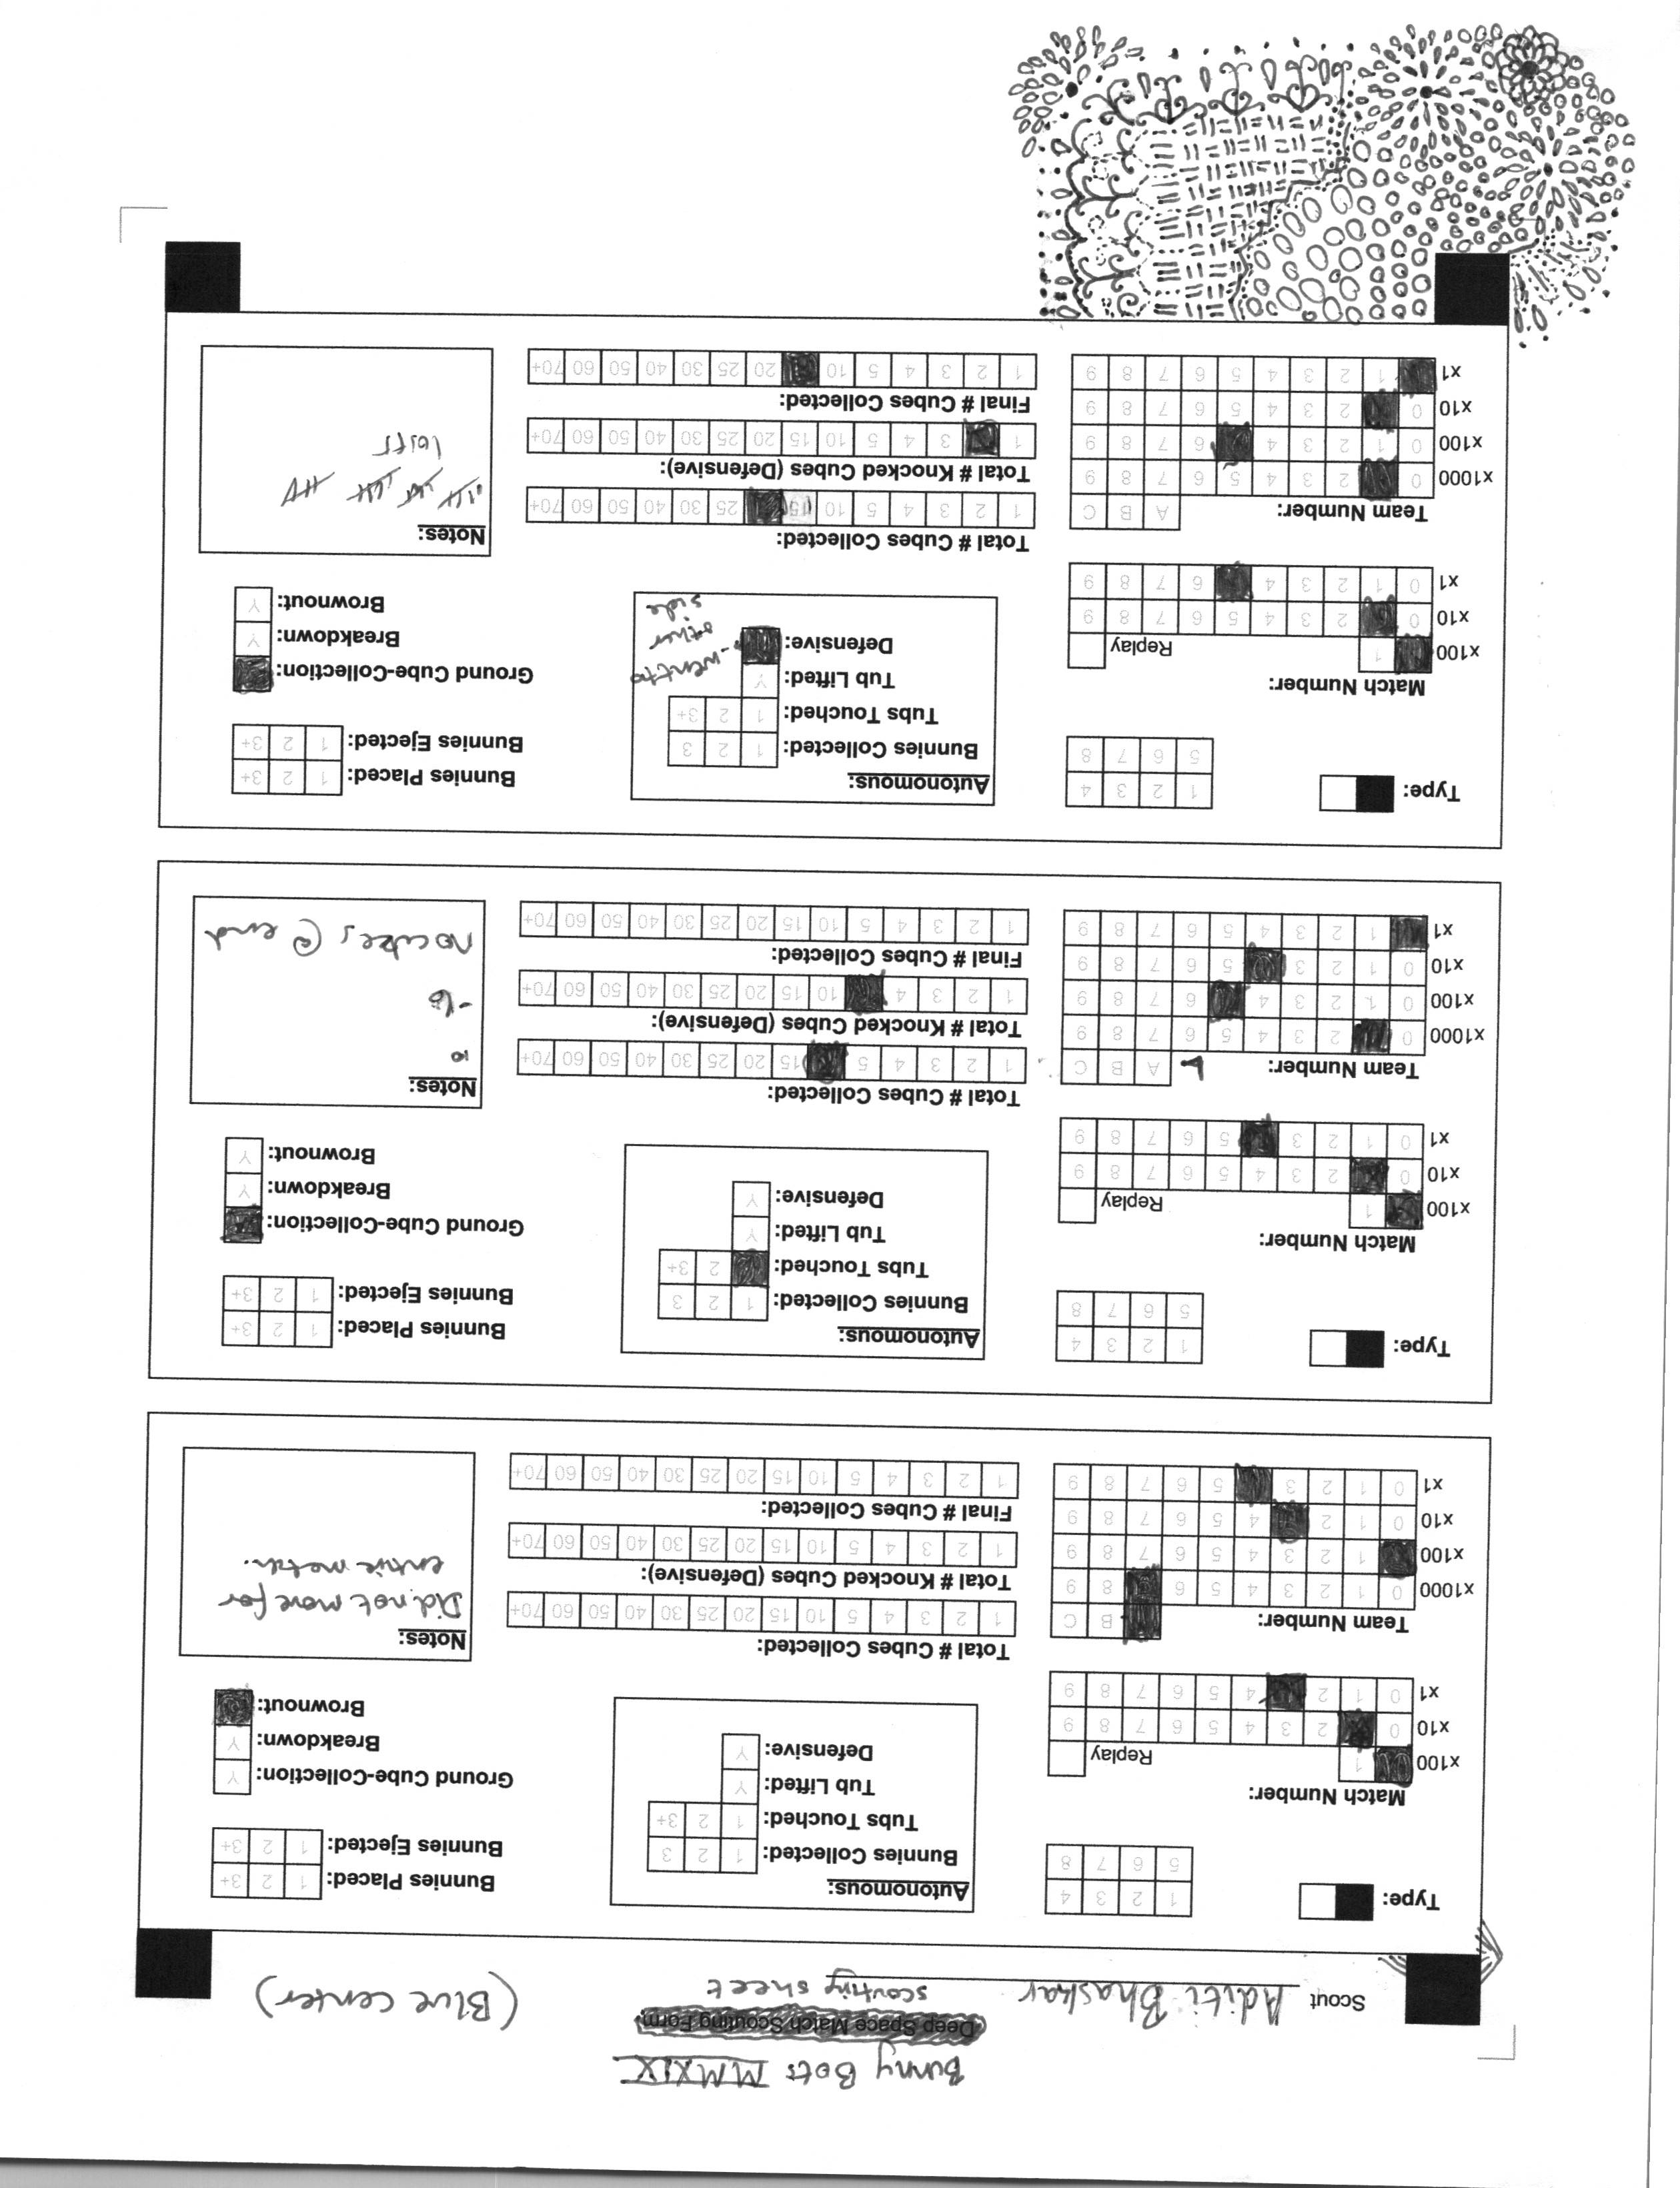 Bunny Bots MMXIX
Deep Space Match Scouting Form
Scout Aditi Bhaskar
scouting sheet
(Blue center)
Type:
1 2 3 4
5 6 7 8
Match Number:
x100 1 Replay
x10 0 2 3 4 5 6 7 8 9
x1 0 1 2 4 5 6 7 8 9
Team Number: B C
x1000 0 1 2 3 4 5 6 8 9
x100 1 2 3 4 5 6 7 8 9
x10 0 1 2 4 5 6 7 8 9
x1 0 1 2 3 5 6 7 8 9
Autonomous:
Bunnies Collected: 1 2 3
Tubs Touched: 1 2 3+
Tub Lifted: Y
Defensive: Y
Total # Cubes Collected:
1 2 3 4 5 10 15 20 25 30 40 50 60 70+
Total # Knocked Cubes (Defensive):
1 2 3 4 5 10 15 20 25 30 40 50 60 70+
Final # Cubes Collected:
1 2 3 4 5 10 15 20 25 30 40 50 60 70+
Bunnies Placed: 1 2 3+
Bunnies Ejected: 1 2 3+
Ground Cube-Collection: Y
Breakdown: Y
Brownout:
Notes:
Did not move for
entire match.
Type:
1 2 3 4
5 6 7 8
Match Number:
x100 1 Replay
x10 0 2 3 4 5 6 7 8 9
x1 0 1 2 3 5 6 7 8 9
Team Number: A B C
x1000 0 2 3 4 5 6 7 8 9
x100 0 1 2 3 4 6 7 8 9
x10 0 1 2 3 5 6 7 8 9
x1 1 2 3 4 5 6 7 8 9
Autonomous:
Bunnies Collected: 1 2 3
Tubs Touched: 2 3+
Tub Lifted: Y
Defensive: Y
Total # Cubes Collected:
1 2 3 4 5 15 20 25 30 40 50 60 70+
Total # Knocked Cubes (Defensive):
1 2 3 4 10 15 20 25 30 40 50 60 70+
Final # Cubes Collected:
1 2 3 4 5 10 15 20 25 30 40 50 60 70+
Bunnies Placed: 1 2 3+
Bunnies Ejected: 1 2 3+
Ground Cube-Collection:
Breakdown: Y
Brownout: Y
Notes:
10
no cubes @ end
Type:
1 2 3 4
5 6 7 8
Match Number:
x100 1 Replay
x10 0 2 3 4 5 6 7 8 9
x1 0 1 2 3 4 6 7 8 9
Team Number: A B C
x1000 0 2 3 4 5 6 7 8 9
x100 0 1 2 3 4 6 7 8 9
x10 0 2 3 4 5 6 7 8 9
x1 1 2 3 4 5 6 7 8 9
Autonomous:
Bunnies Collected: 1 2 3
Tubs Touched: 1 2 3+
Tub Lifted: Y
Defensive: - went to
other
side
Total # Cubes Collected:
1 2 3 4 5 10 15 25 30 40 50 60 70+
Total # Knocked Cubes (Defensive):
1 3 4 5 10 15 20 25 30 40 50 60 70+
Final # Cubes Collected:
1 2 3 4 5 10 20 25 30 40 50 60 70+
Bunnies Placed: 1 2 3+
Bunnies Ejected: 1 2 3+
Ground Cube-Collection:
Breakdown: Y
Brownout: Y
Notes: